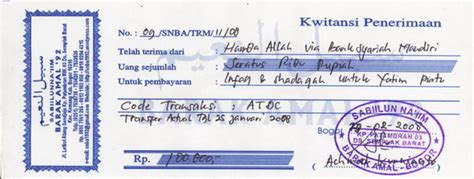 Kwitansi Penerimaan
SABIILUNNA'IM
BARAK AMAL '92
No. : 09/SNBA/TRM/11/08
Telah terima dari : Hamba Allah via Bank Syariah Mandiri
Uang sejumlah : Seratus Ribu Rupiah
Untuk pembayaran : Infaq & shadaqah untuk Yatim Piatu
Code Transaksi : ATDC
Transfer Actual Tgl 25 Januari 2008
Bogor, -02-2008
SABIILUN NA'IM
DS. SEMPLAK BARAT
BARAK AMAL - BOGOR
Rp. 100.000,-